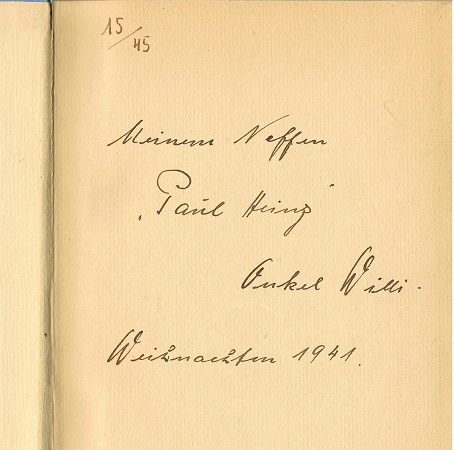 15/45
Meinem Neffen
„Paul Heinz“
Onkel Willi.
Weihnachten 1941.